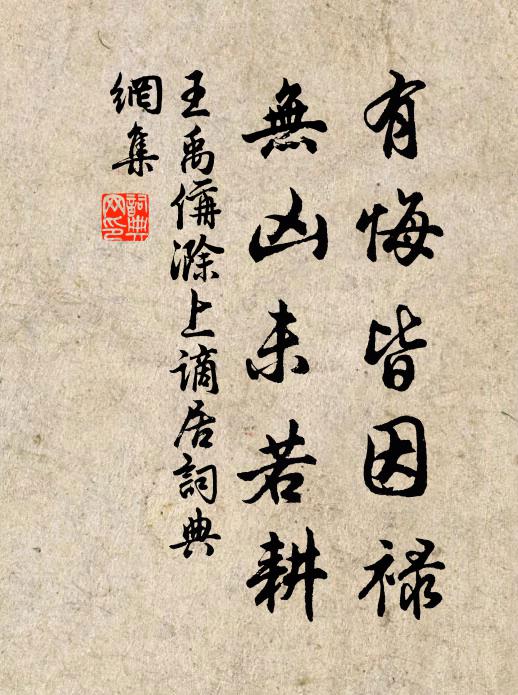 有悔皆因禄
無凶未若耕
王禹偁滁上謫居詞典
網集
詞典
网印